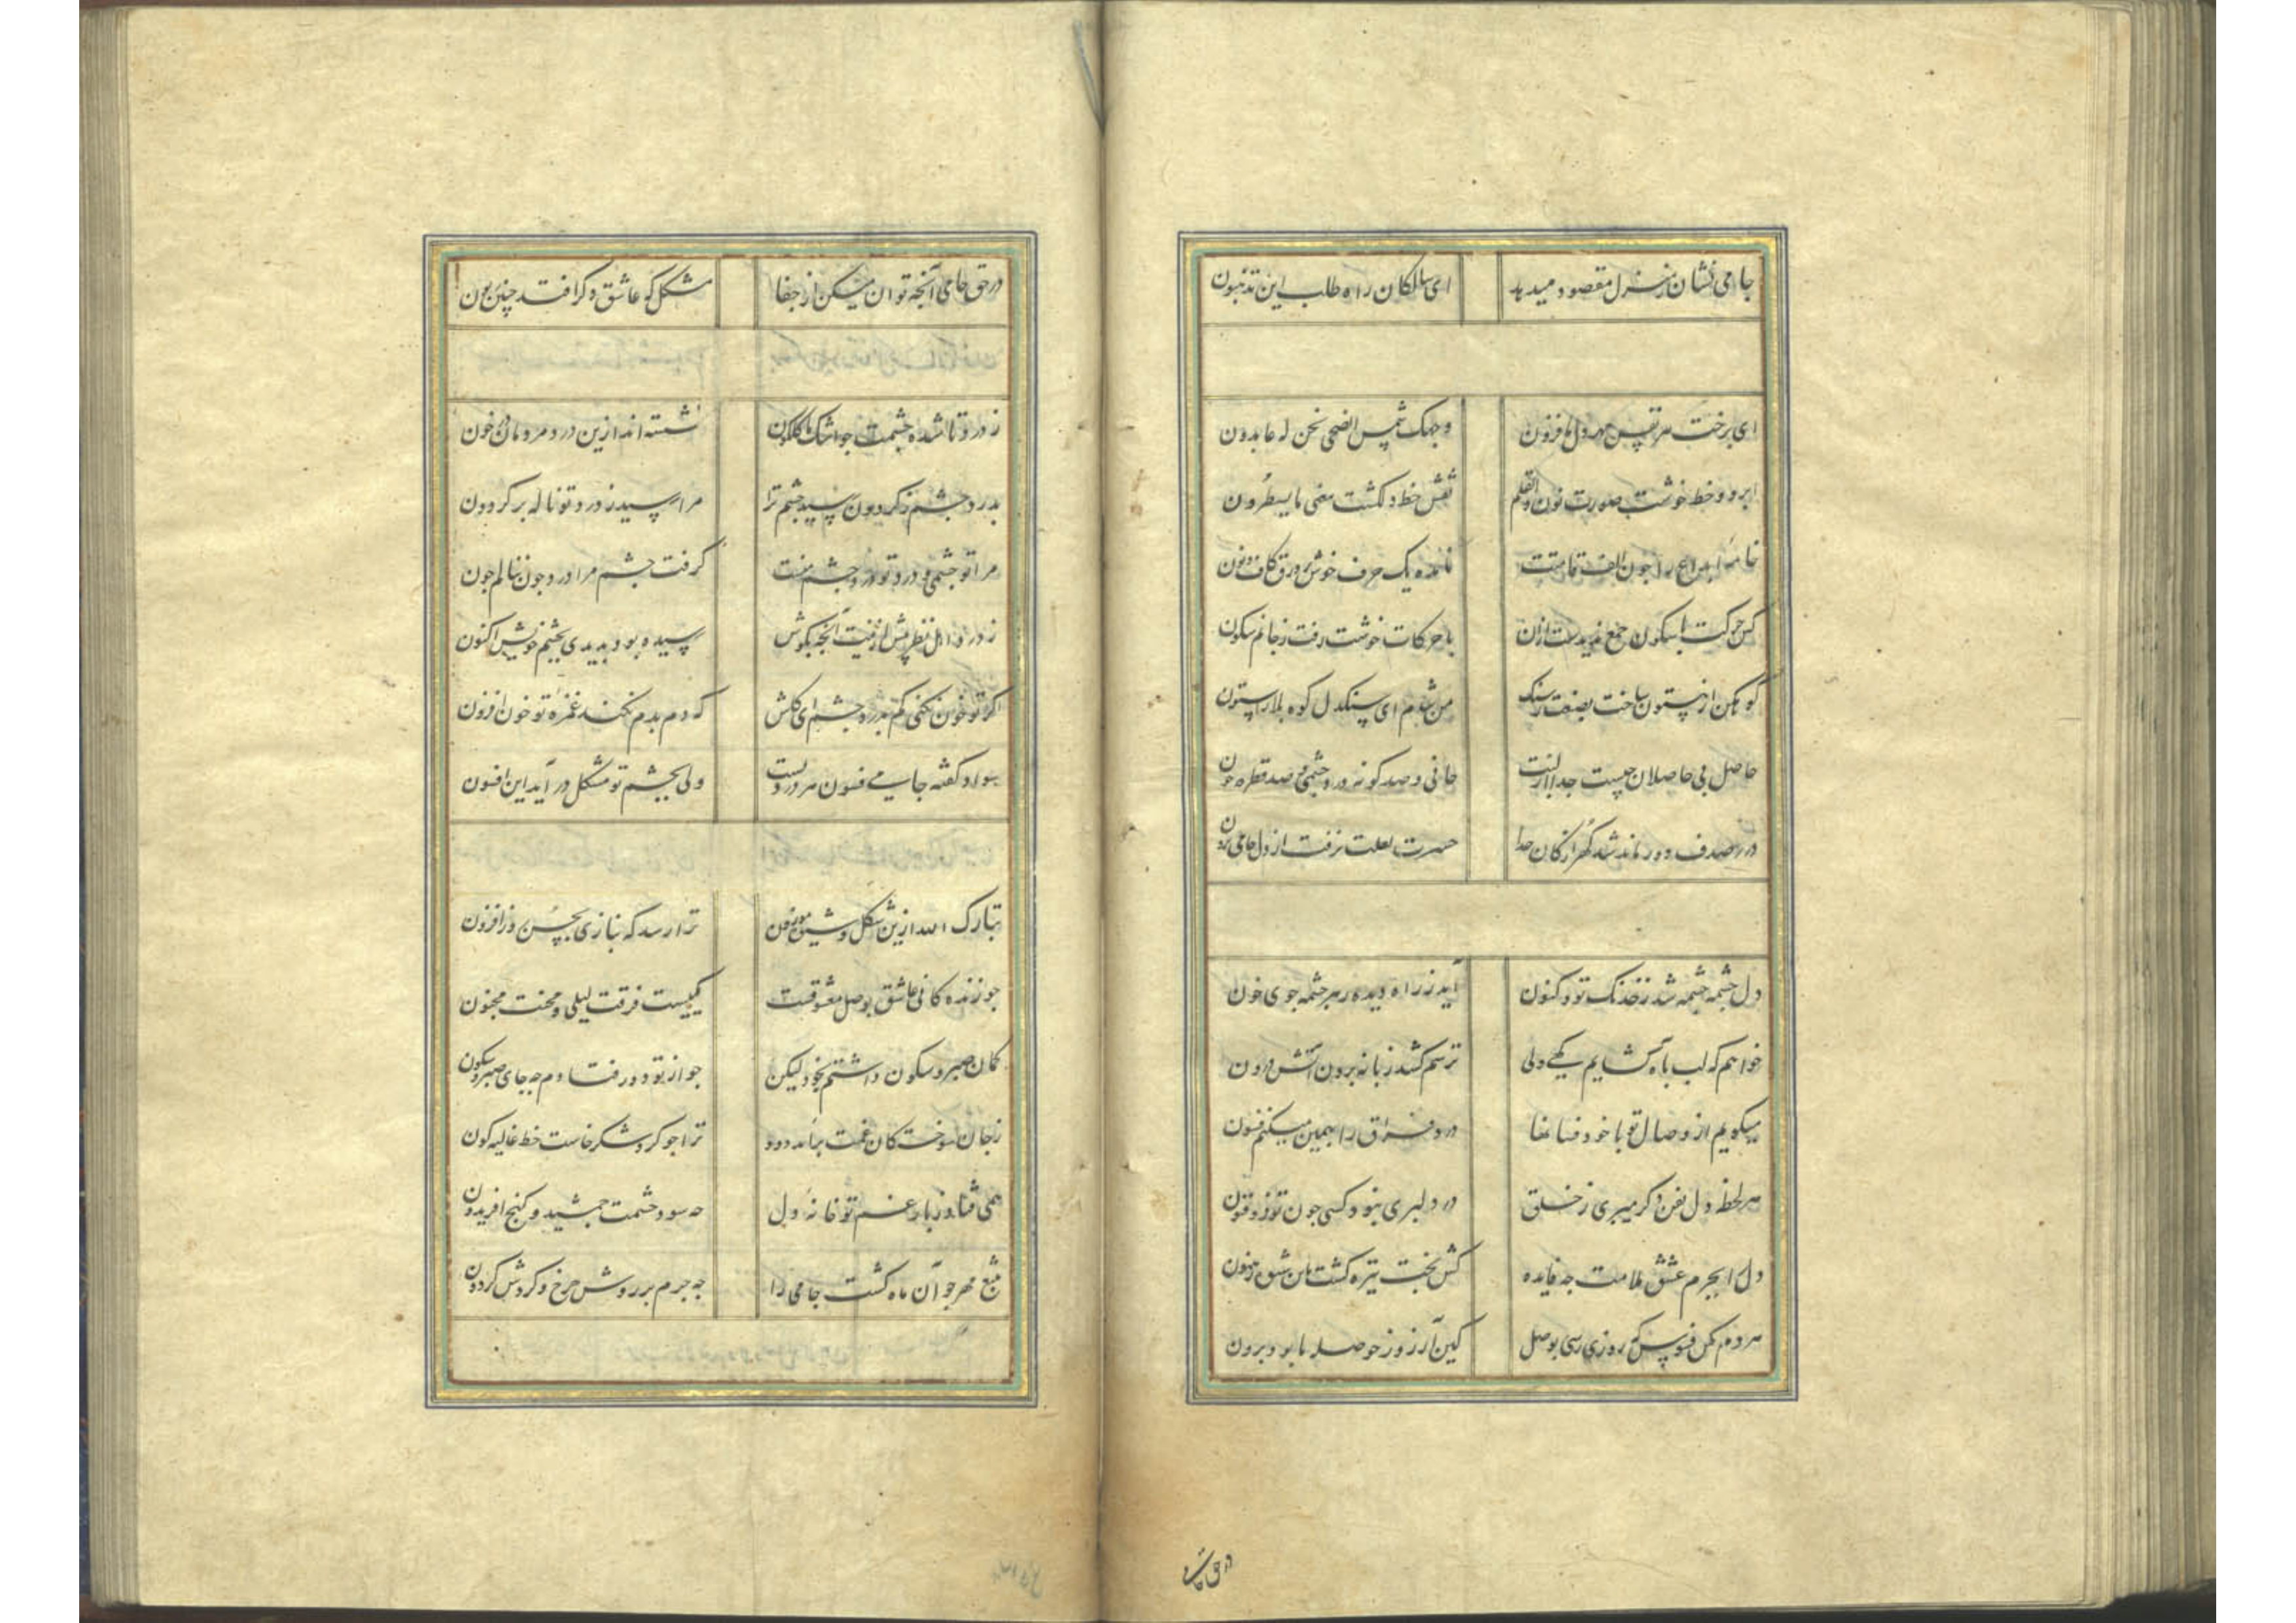 جامی نشان ز منزل مقصود میدهد ای سالکان راه طلب این تذهبون
ای برخت هر نفس مهر دلم فزون وجهک شمس الضحی نحن له عابدون
ابرو و خط خوشت صورت نون والقلم نقش خط دلکشت معنی ما یسطرون
خامه ابداع را چون الف قامتت نامده یک حرف خوش بر ورق کاف و نون
کس حرکت با سکون جمع ندیدست ازان با حرکات خوشت رفت ز جانم سکون
کوهکن از بیستون ساخت بصنعت ز سنک من شدم ای سنکدل کوه بلا را ستون
حاصل بی حاصلان چیست جدا از لبت جانی و صد کونه درد چشمی و صد قطره خون
در ز صدف دور ماند شد کهر از کان جدا حسرت لعلت نرفت از دل جامی برون
دل چشمه چشمه شد ز خدنک تو و کنون آید ز راه دیده ز هر چشمه جوی خون
خواهم که لب باه کشایم کهی ولی ترسم کشد زبانه برون آتش درون
میکویم از وصال تو با خود فسانها درد فراق را بهمین میکنم فسون
هر لحظه دل بفن دکر میبری ز خلق در دلبری نبود کسی چون تو ذو فنون
دل را بجرم عشق ملامت چه فایده کش بخت تیره کشت باین شیوه رهنمون
هر دم مکن فسوس که روزی رسی بوصل کین آرزو ز حوصله ما بود برون
در حق جامی
در حق جامی آنچه تو ان میکنی از جفا مشکل که عاشق دکر افتد چنین زبون
ز درد تا شده چشمت چو اشک ما کلکون نشسته اند ازین درد مردمان در خون
بدرد چشم ز کردون رسید چشم ترا مرا رسید ز درد تو ناله بر کردون
مرا تو چشمی و درد تو درد چشم منست کرفت چشم مرا درد چون ننالم چون
ز درد اهل نظر پیش ازینت آنچه بکوش رسیده بود بدیدی بچشم خویش اکنون
اکر تو خون نکنی کم بدرد چشم ای کاش که دم بدم نکند غمزه تو خون افزون
سواد کفته جامی فسون هر دردست ولی بچشم تو مشکل در آید این افسون
تبارک الله ازین شکل و شیوه موزون ترا رسد که بنازی بحسن روز افزون
چو زنده کانی عاشق بوصل معشوقست کمیست فرقت لیلی و محنت مجنون
کمان صبر و سکون داشتم بخود لیکن چو از تو دور فتادم چه جای صبر و سکون
ز جان سوختکان غمت برآمد دود ترا چو کرد شکر خاست خط غالیه کون
همی فتد ز بار غم تو خانه دل چه سود حشمت جمشید و کنج افریدون
بتیغ مهر چو آن ماه کشت جامی را چه جرم بر روش چرخ و کردش کردون